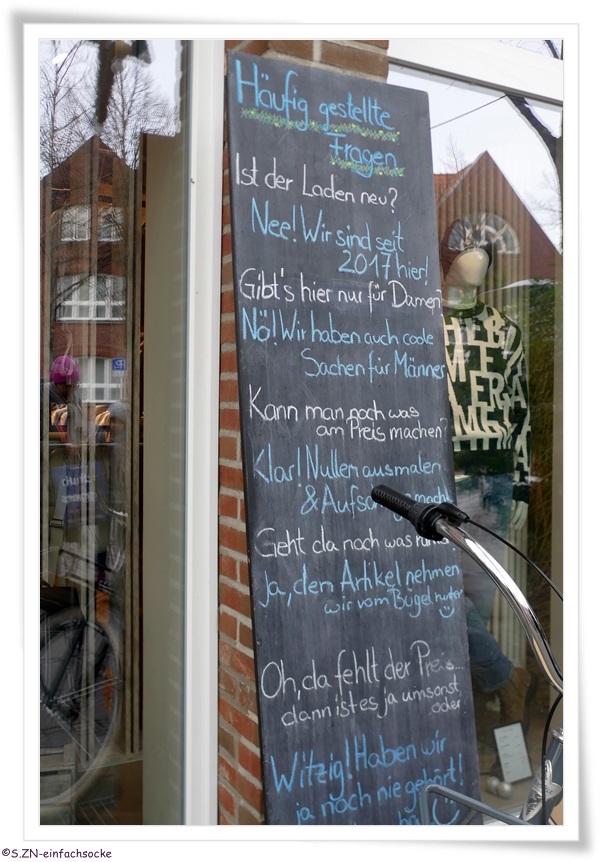 Häufig gestellte
Fragen
Ist der Laden neu?
Nee! Wir sind seit
2017 hier!
Gibt's hier nur für Damen?
Nö! Wir haben auch coole
Sachen für Männer
Kann man noch was
am Preis machen?
Klar! Nullen ausmalen
&
Geht da noch was
Ja, den Artikel nehmen
wir vom Bügel runter
Oh, da fehlt der Preis...
dann ist es ja umsonst
oder
Witzig! Haben wir
ja noch nie gehört!
©S.ZN-einfachsocke